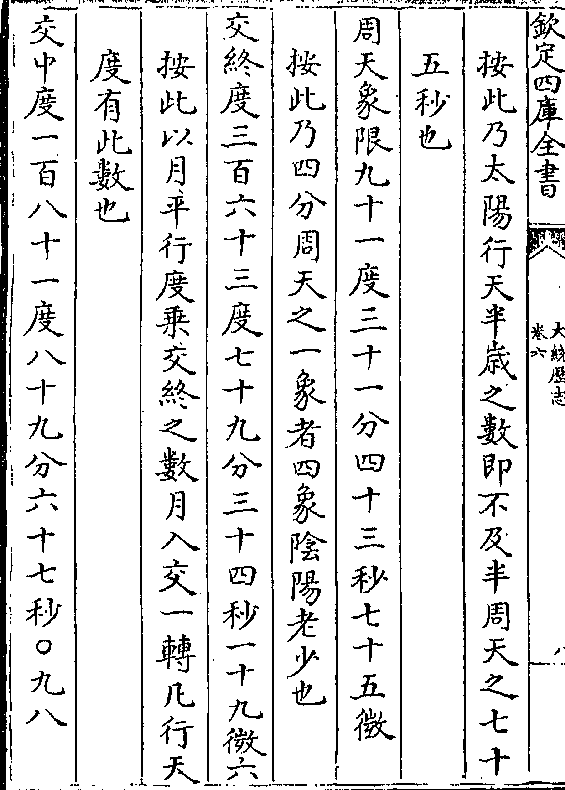 欽定四庫全書
大統歴志
卷六
按此乃太陽行天半歳之數即不及半周天之七十
五秒也
周天象限九十一度三十一分四十三秒七十五微
按此乃四分周天之一象者四象陰陽老少也
交終度三百六十三度七十九分三十四秒一十九微六
按此以月平行度乗交終之數月入交一轉凡行天
度有此數也
交中度一百八十一度八十九分六十七秒〇九八